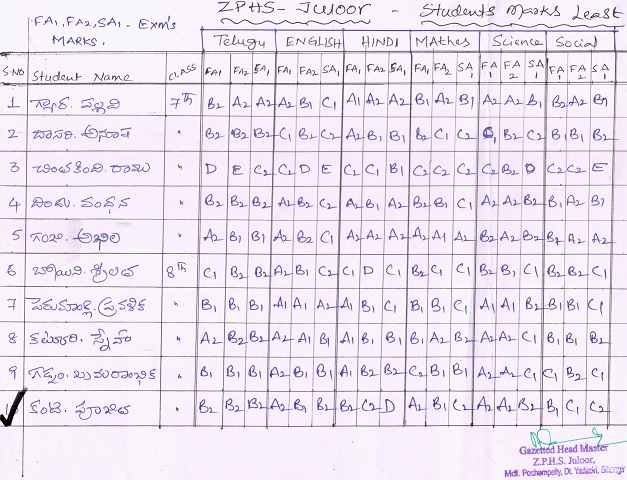 ZPHS- Juloor - Students Marks Least
FA1, FA2, SA1 - Exm's
MARKS.
Telugu ENGLISH HINDI Mathes Science Social
S.NO Student Name CLASS FA1 FA2 SA1 FA1 FA2 SA1 FA1 FA2 SA1 FA1 FA2 SA1 FA1 FA2 SA1 FA1 FA2 SA1
1 7th B2 A2 A2 A2 B1 C1 A1 A2 A2 B1 A2 B1 A2 A2 B1 B2 A2 B1
2 దాసరి. అనూష " B2 B2 B2 C1 B2 C2 A2 B1 B1 B2 C1 C2 C1 B2 C2 B1 B1 B2
3 చింతకింది. రాము " D E C2 C2 D E C2 C1 B1 C2 C2 C2 C2 B2 D C2 C2 E
4 వందన " B2 B2 B2 A2 B2 C2 A2 B1 A2 B2 B1 C1 A2 A2 B2 B1 A2 B1
5 గంజి. అఖిల " A2 B1 B1 A2 B2 C1 A2 A2 A2 A2 A1 A2 B2 A2 B2 A2 A2
6 శ్రీలత 8th C1 B2 B2 A2 B1 C2 C1 D C1 B2 C1 C1 B2 B1 C1 B2 B2 C1
7 పెరుమాండ్ల. ప్రవళిక " B1 B1 B1 A1 A1 A2 A1 B1 C1 B1 B1 C1 A1 A1 B2 B1 B1 C1
8 స్నేహా " A2 B2 B2 A2 A1 B1 A1 B1 B1 B1 A2 B2 A2 A2 C1 B1 B1 B2
9 గడ్డం. " B1 B1 B1 A2 B1 B1 A1 B2 B2 C2 B1 B1 A2 A2 C1 C1 B2 C1
పూజిత " B2 B2 B2 A2 B1 B2 B2 C2 D A2 B1 C2 A2 A2 B2 B1 C1 C2
Gazetted Head Master
Z.P.H.S. Juloor,
Mdl. Pochampally, Dt. Yadadri, Bhongir